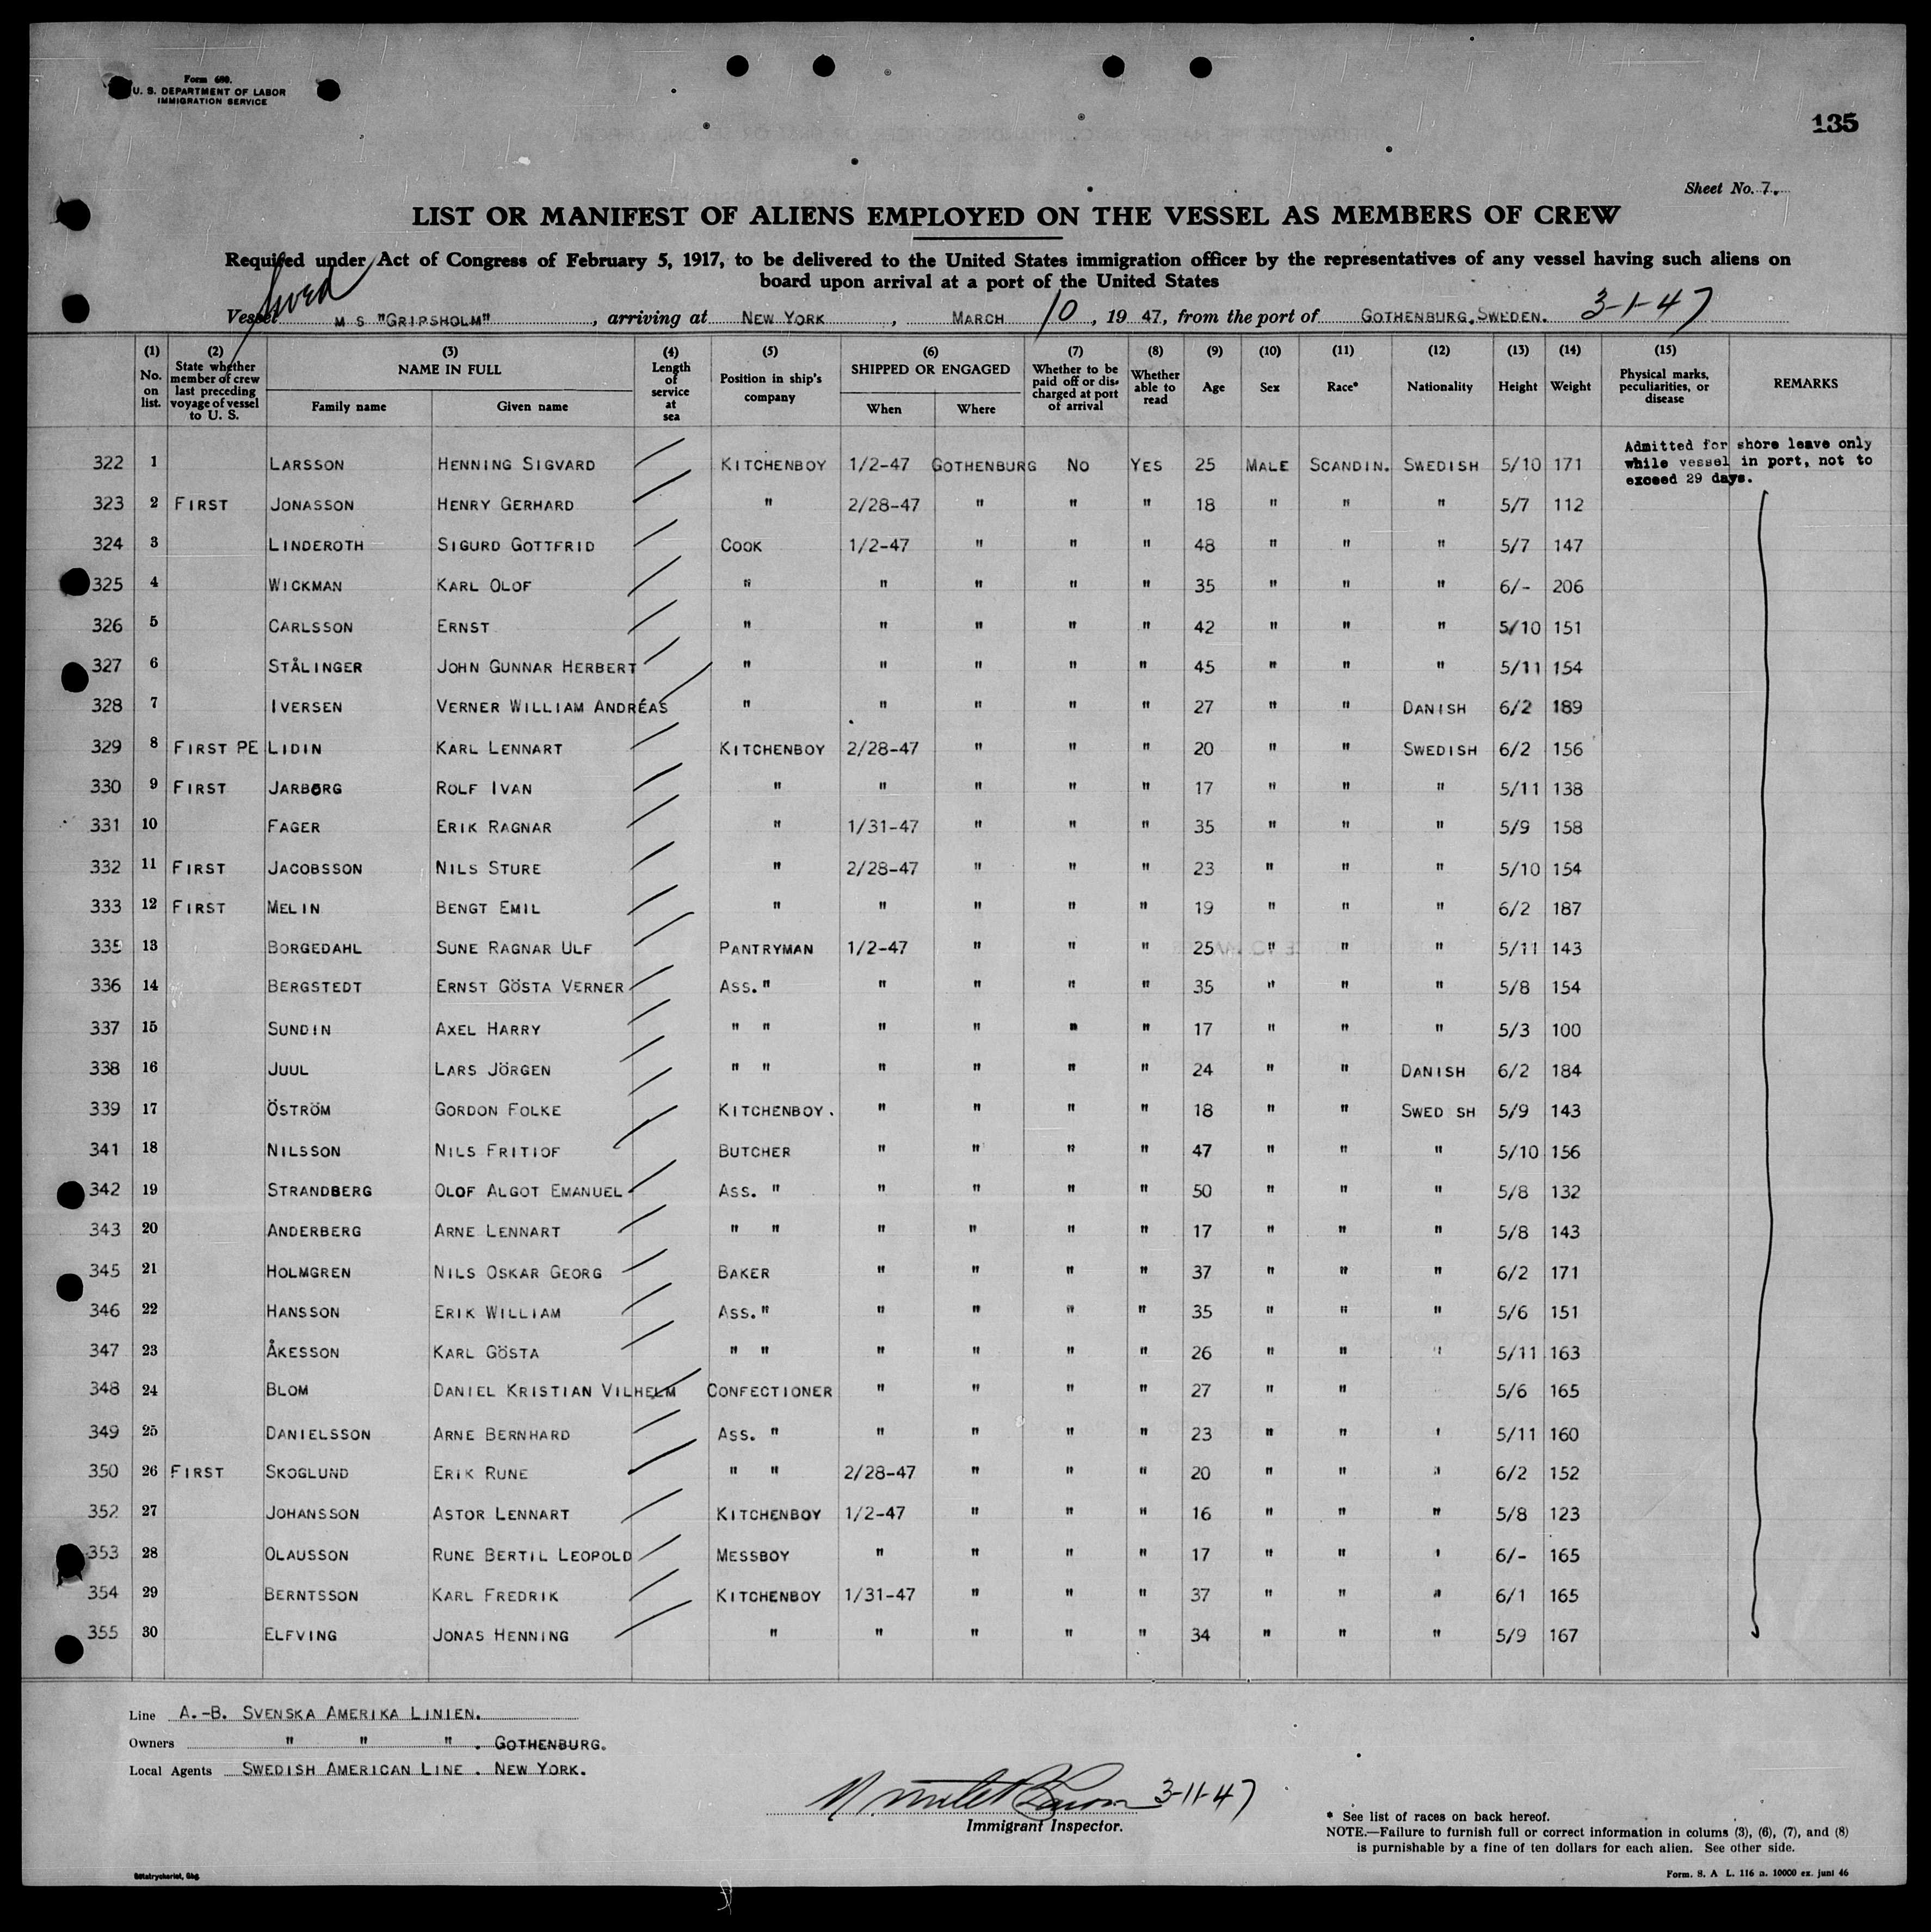 Form 680.
U. S. DEPARTMENT OF LABOR
IMMIGRATION SERVICE
135
Sheet No. 7.
LIST OR MANIFEST OF ALIENS EMPLOYED ON THE VESSEL AS MEMBERS OF CREW
Required under Act of Congress of February 5, 1917, to be delivered to the United States immigration officer by the representatives of any vessel having such aliens on
board upon arrival at a port of the United States
Swed
Vessel M S "GRIPSHOLM", arriving at NEW YORK, MARCH 10, 19 47, from the port of GOTHENBURG, SWEDEN. 3-1-47
(1) No. on list. (2) State whether member of crew last preceding voyage of vessel to U. S. (3) NAME IN FULL Family name Given name (4) Length of service at sea (5) Position in ship's company (6) SHIPPED OR ENGAGED When Where (7) Whether to be paid off or discharged at port of arrival (8) Whether able to read (9) Age (10) Sex (11) Race* (12) Nationality (13) Height (14) Weight (15) Physical marks, peculiarities, or disease REMARKS
Admitted for shore leave only
while vessel in port, not to
exceed 29 days.
322 1 LARSSON HENNING SIGVARD KITCHENBOY 1/2-47 GOTHENBURG NO YES 25 MALE SCANDIN. SWEDISH 5/10 171
323 2 FIRST JONASSON HENRY GERHARD " 2/28-47 " " " 18 " " " 5/7 112
324 3 LINDEROTH SIGURD GOTTFRID COOK 1/2-47 " " " 48 " " " 5/7 147
325 4 WICKMAN KARL OLOF " " " " " 35 " " " 6/- 206
326 5 CARLSSON ERNST " " " " " 42 " " " 5/10 151
327 6 STÅLINGER JOHN GUNNAR HERBERT " " " " " 45 " " " 5/11 154
328 7 IVERSEN VERNER WILLIAM ANDRÉAS " " " " " 27 " " DANISH 6/2 189
329 8 FIRST PE LIDIN KARL LENNART KITCHENBOY 2/28-47 " " " 20 " " SWEDISH 6/2 156
330 9 FIRST JARBORG ROLF IVAN " " " " " 17 " " " 5/11 138
331 10 FAGER ERIK RAGNAR " 1/31-47 " " " 35 " " " 5/9 158
332 11 FIRST JACOBSSON NILS STURE " 2/28-47 " " " 23 " " " 5/10 154
333 12 FIRST MELIN BENGT EMIL " " " " " 19 " " " 6/2 187
335 13 BORGEDAHL SUNE RAGNAR ULF PANTRYMAN 1/2-47 " " " 25 " " " 5/11 143
336 14 BERGSTEDT ERNST GÖSTA VERNER ASS. " " " " " 35 " " " 5/8 154
337 15 SUNDIN AXEL HARRY " " " " " " 17 " " " 5/3 100
338 16 JUUL LARS JÖRGEN " " " " " " 24 " " DANISH 6/2 184
339 17 ÖSTRÖM GORDON FOLKE KITCHENBOY. " " " " 18 " " SWED SH 5/9 143
341 18 NILSSON NILS FRITIOF BUTCHER " " " " 47 " " " 5/10 156
342 19 STRANDBERG OLOF ALGOT EMANUEL ASS. " " " " " 50 " " " 5/8 132
343 20 ANDERBERG ARNE LENNART " " " " " " 17 " " " 5/8 143
345 21 HOLMGREN NILS OSKAR GEORG BAKER " " " " 37 " " " 6/2 171
346 22 HANSSON ERIK WILLIAM ASS. " " " " " 35 " " " 5/6 151
347 23 ÅKESSON KARL GÖSTA " " " " " " 26 " " " 5/11 163
348 24 BLOM DANIEL KRISTIAN VILHELM CONFECTIONER " " " " 27 " " 5/6 165
349 25 DANIELSSON ARNE BERNHARD ASS. " " " " " 23 " " ' 5/11 160
350 26 FIRST SKOGLUND ERIK RUNE " " 2/28-47 " " " 20 " " " 6/2 152
352 27 JOHANSSON ASTOR LENNART KITCHENBOY 1/2-47 " " " 16 " " " 5/8 123
353 28 OLAUSSON RUNE BERTIL LEOPOLD MESSBOY " " " " 17 " " ' 6/- 165
354 29 BERNTSSON KARL FREDRIK KITCHENBOY 1/31-47 " " " 37 " " " 6/1 165
355 30 ELFVING JONAS HENNING " " " " " 34 " " " 5/9 167
Line A.-B. SVENSKA AMERIKA LINIEN.
Owners " " " . GOTHENBURG.
Local Agents SWEDISH AMERICAN LINE . NEW YORK.
3-11-47
Immigrant Inspector.
* See list of races on back hereof.
NOTE.—Failure to furnish full or correct information in colums (3), (6), (7), and (8)
is purnishable by a fine of ten dollars for each alien. See other side.
Götatryckeriet, Gbg.
Form. S. A L. 116 a. 10000 ex. juni 46